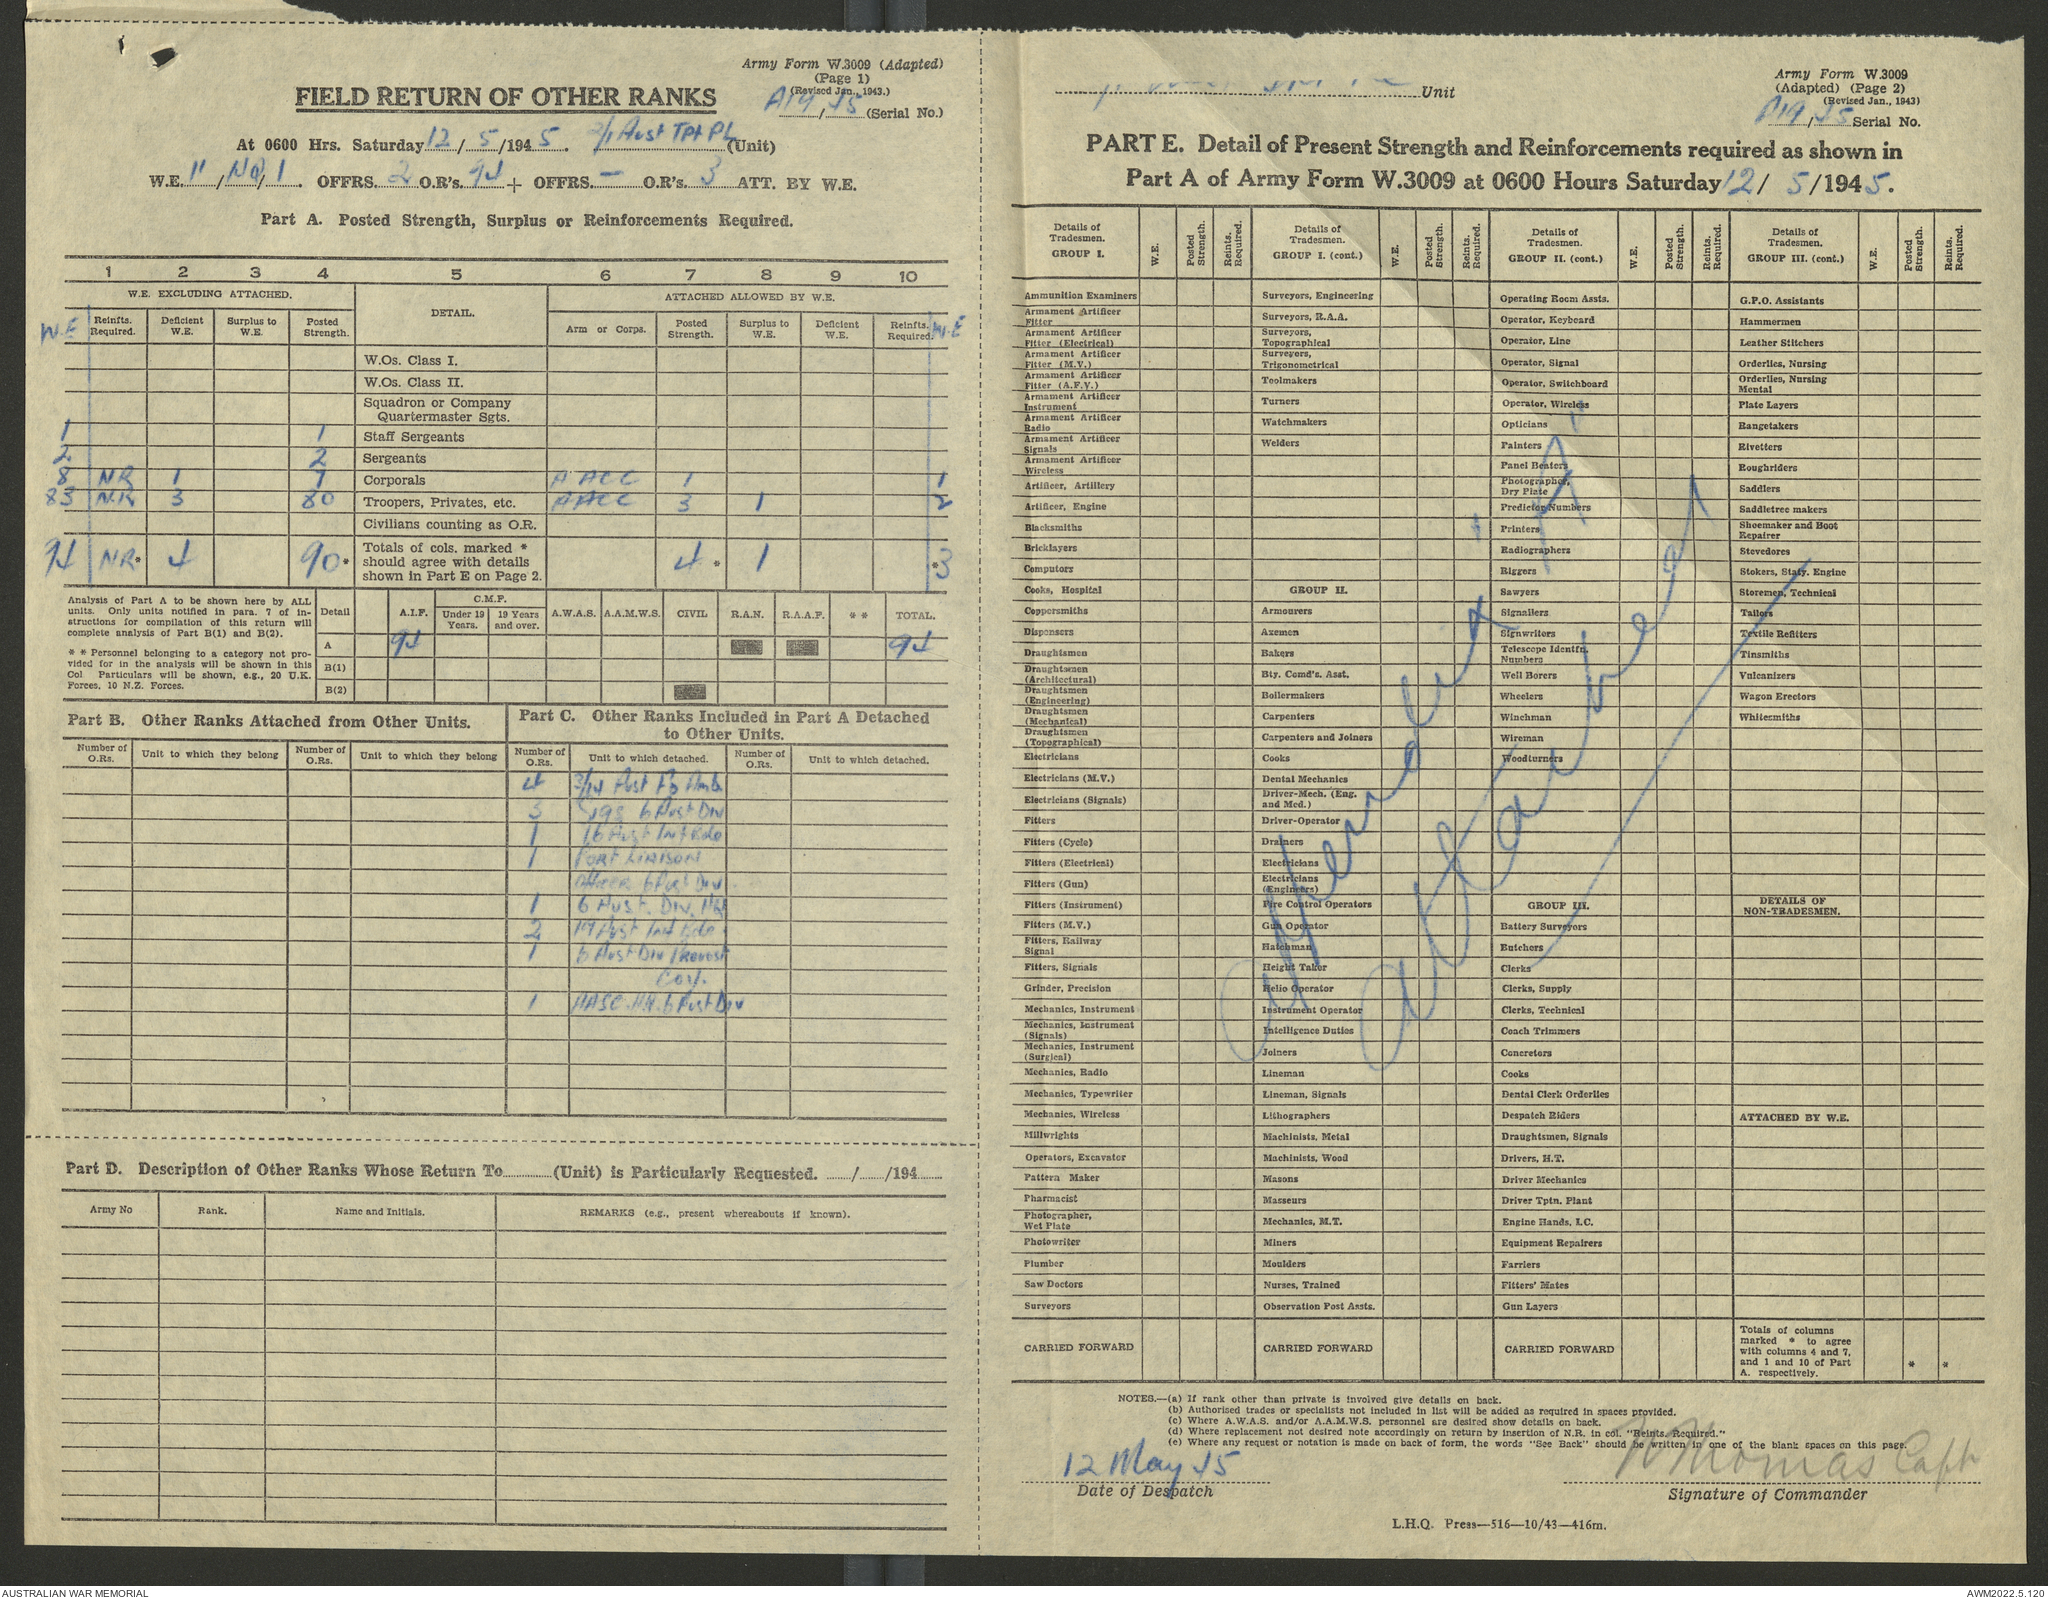 Army Form W.3009 (Adapted)
(Page 1)
(Revised Jan., 1943.)
FIELD RETURN OF OTHER RANKS
A19/45 (Serial No.)
At 0600 Hrs. Saturday 12/5/1945. 2/1 Aust Tpt Pl (Unit)
W.E. 11/ /1. OFFRS. 2 O.R's. 94 + OFFRS. — O.R's. 3 ATT. BY W.E.
Part A. Posted Strength, Surplus or Reinforcements Required.
1 2 3 4 5 6 7 8 9 10
W.E. EXCLUDING ATTACHED. DETAIL. ATTACHED ALLOWED BY W.E.
W.E Reinfts. Required. Deficient W.E. Surplus to W.E. Posted Strength. Arm or Corps. Posted Strength. Surplus to W.E. Deficient W.E. Reinfts. Required. W.E
W.Os. Class I.
W.Os. Class II.
Squadron or Company
Quartermaster Sgts.
1 1 Staff Sergeants
2 2 Sergeants
8 NR 1 7 Corporals AACC 1 1
83 N.R 3 80 Troopers, Privates, etc. AACC 3 1 2
Civilians counting as O.R.
94 NR* 4 90* Totals of cols. marked * should agree with details shown in Part E on Page 2. 4* 1 *3
Analysis of Part A to be shown here by ALL
units. Only units notified in para. 7 of in-
structions for compilation of this return will
complete analysis of Part B(1) and B(2).
* * Personnel belonging to a category not pro-
vided for in the analysis will be shown in this
Col. Particulars will be shown, e.g., 20 U.K.
Forces, 10 N.Z. Forces.
Detail A.I.F. C.M.F. Under 19 Years. 19 Years and over. A.W.A.S. A.A.M.W.S. CIVIL R.A.N. R.A.A.F. * * TOTAL.
A 94 94
B(1)
B(2)
Part B. Other Ranks Attached from Other Units.
Number of O.Rs. Unit to which they belong Number of O.Rs. Unit to which they belong
Part C. Other Ranks Included in Part A Detached
to Other Units.
Number of O.Rs. Unit to which detached. Number of O.Rs. Unit to which detached.
4 Aust Fd Amb
3 Sigs 6 Aust Div
1 16 Aust Inf Bde
1 Port Liaison
Officer 6 Aust Div
1 6 Aust. Div. HQ
2 Aust Inf Bde
1 6 Aust Div Provost
Coy.
1 AASC. HQ. 6 Aust Div
Part D. Description of Other Ranks Whose Return To (Unit) is Particularly Requested. / /194
Army No Rank. Name and Initials. REMARKS (e.g., present whereabouts if known).
Unit
Army Form W.3009
(Adapted) (Page 2)
(Revised Jan., 1943)
A19/45 Serial No.
PART E. Detail of Present Strength and Reinforcements required as shown in
Part A of Army Form W.3009 at 0600 Hours Saturday 12/ 5/1945.
Details of Tradesmen. GROUP I. W.E. Posted Strength. Reints. Required.
Ammunition Examiners
Armament Artificer Fitter
Armament Artificer Fitter (Electrical)
Armament Artificer Fitter (M.V.)
Armament Artificer Fitter (A.F.V.)
Armament Artificer Instrument
Armament Artificer Radio
Armament Artificer Signals
Armament Artificer Wireless
Artificer, Artillery
Artificer, Engine
Blacksmiths
Bricklayers
Computors
Cooks, Hospital
Coppersmiths
Dispensers
Draughtsmen
Draughtsmen (Architectural)
Draughtsmen (Engineering)
Draughtsmen (Mechanical)
Draughtsmen (Topographical)
Electricians
Electricians (M.V.)
Electricians (Signals)
Fitters
Fitters (Cycle)
Fitters (Electrical)
Fitters (Gun)
Fitters (Instrument)
Fitters (M.V.)
Fitters, Railway Signal
Fitters, Signals
Grinder, Precision
Mechanics, Instrument
Mechanics, Instrument (Signals)
Mechanics, Instrument (Surgical)
Mechanics, Radio
Mechanics, Typewriter
Mechanics, Wireless
Millwrights
Operators, Excavator
Pattern Maker
Pharmacist
Photographer, Wet Plate
Photowriter
Plumber
Saw Doctors
Surveyors
CARRIED FORWARD
Details of Tradesmen. GROUP I. (cont.) W.E. Posted Strength. Reints. Required.
Surveyors, Engineering
Surveyors, R.A.A.
Surveyors, Topographical
Surveyers, Trigonometrical
Toolmakers
Turners
Watchmakers
Welders
GROUP II.
Armourers
Axemen
Bakers
Bty. Comd's. Asst.
Boilermakers
Carpenters
Carpenters and Joiners
Cooks
Dental Mechanics
Driver-Mech. (Eng. and Med.)
Driver-Operator
Drainers
Electricians
Electricians (Engineers)
Fire Control Operators
Gun Operator
Hatchman
Height Taker
Helio Operator
Instrument Operator
Intelligence Duties
Joiners
Lineman
Lineman, Signals
Lithographers
Machinists, Metal
Machinists, Wood
Masons
Masseurs
Mechanics, M.T.
Miners
Moulders
Nurses, Trained
Observation Post Assts.
CARRIED FORWARD
Details of Tradesmen. GROUP II. (cont.) W.E. Posted Strength. Reints. Required.
Operating Room Assts.
Operator, Keyboard
Operator, Line
Operator, Signal
Operator, Switchboard
Operator, Wireless
Opticians
Painters
Panel Beaters
Photographer, Dry Plate
Predictor Numbers
Printers
Radiographers
Riggers
Sawyers
Signallers
Signwriters
Telescope Identfn. Numbers
Well Borers
Wheelers
Winchman
Wireman
Woodturners
GROUP III.
Battery Surveyors
Butchers
Clerks
Clerks, Supply
Clerks, Technical
Coach Trimmers
Concretors
Cooks
Dental Clerk Orderlies
Despatch Riders
Draughtsmen, Signals
Drivers, H.T.
Driver Mechanics
Driver Tptn. Plant
Engine Hands, I.C.
Equipment Repairers
Farriers
Fitters' Mates
Gun Layers
CARRIED FORWARD
Details of Tradesmen. GROUP III. (cont.) W.E. Posted Strength. Reints. Required.
G.P.O. Assistants
Hammermen
Leather Stitchers
Orderlies, Nursing
Orderlies, Nursing Mental
Plate Layers
Rangetakers
Rivetters
Roughriders
Saddlers
Saddletree makers
Shoemaker and Boot Repairer
Stevedores
Stokers, Staty. Engine
Storemen, Technical
Tailors
Textile Refitters
Tinsmiths
Vulcanizers
Wagon Erectors
Whitesmiths
DETAILS OF NON-TRADESMEN.
ATTACHED BY W.E.
Totals of columns marked * to agree with columns 4 and 7, and 1 and 10 of Part A. respectively. * *
Appendix "A"
attached
NOTES.—(a) If rank other than private is involved give details on back.
(b) Authorised trades or specialists not included in list will be added as required in spaces provided.
(c) Where A.W.A.S. and/or A.A.M.W.S. personnel are desired show details on back.
(d) Where replacement not desired note accordingly on return by insertion of N.R. in col. "Reints. Required."
(e) Where any request or notation is made on back of form, the words "See Back" should be written in one of the blank spaces on this page.
12 May 45
Date of Despatch
Thomas Capt
Signature of Commander
L.H.Q. Press—516—10/43—416m.
AUSTRALIAN WAR MEMORIAL
AWM2022.5.120